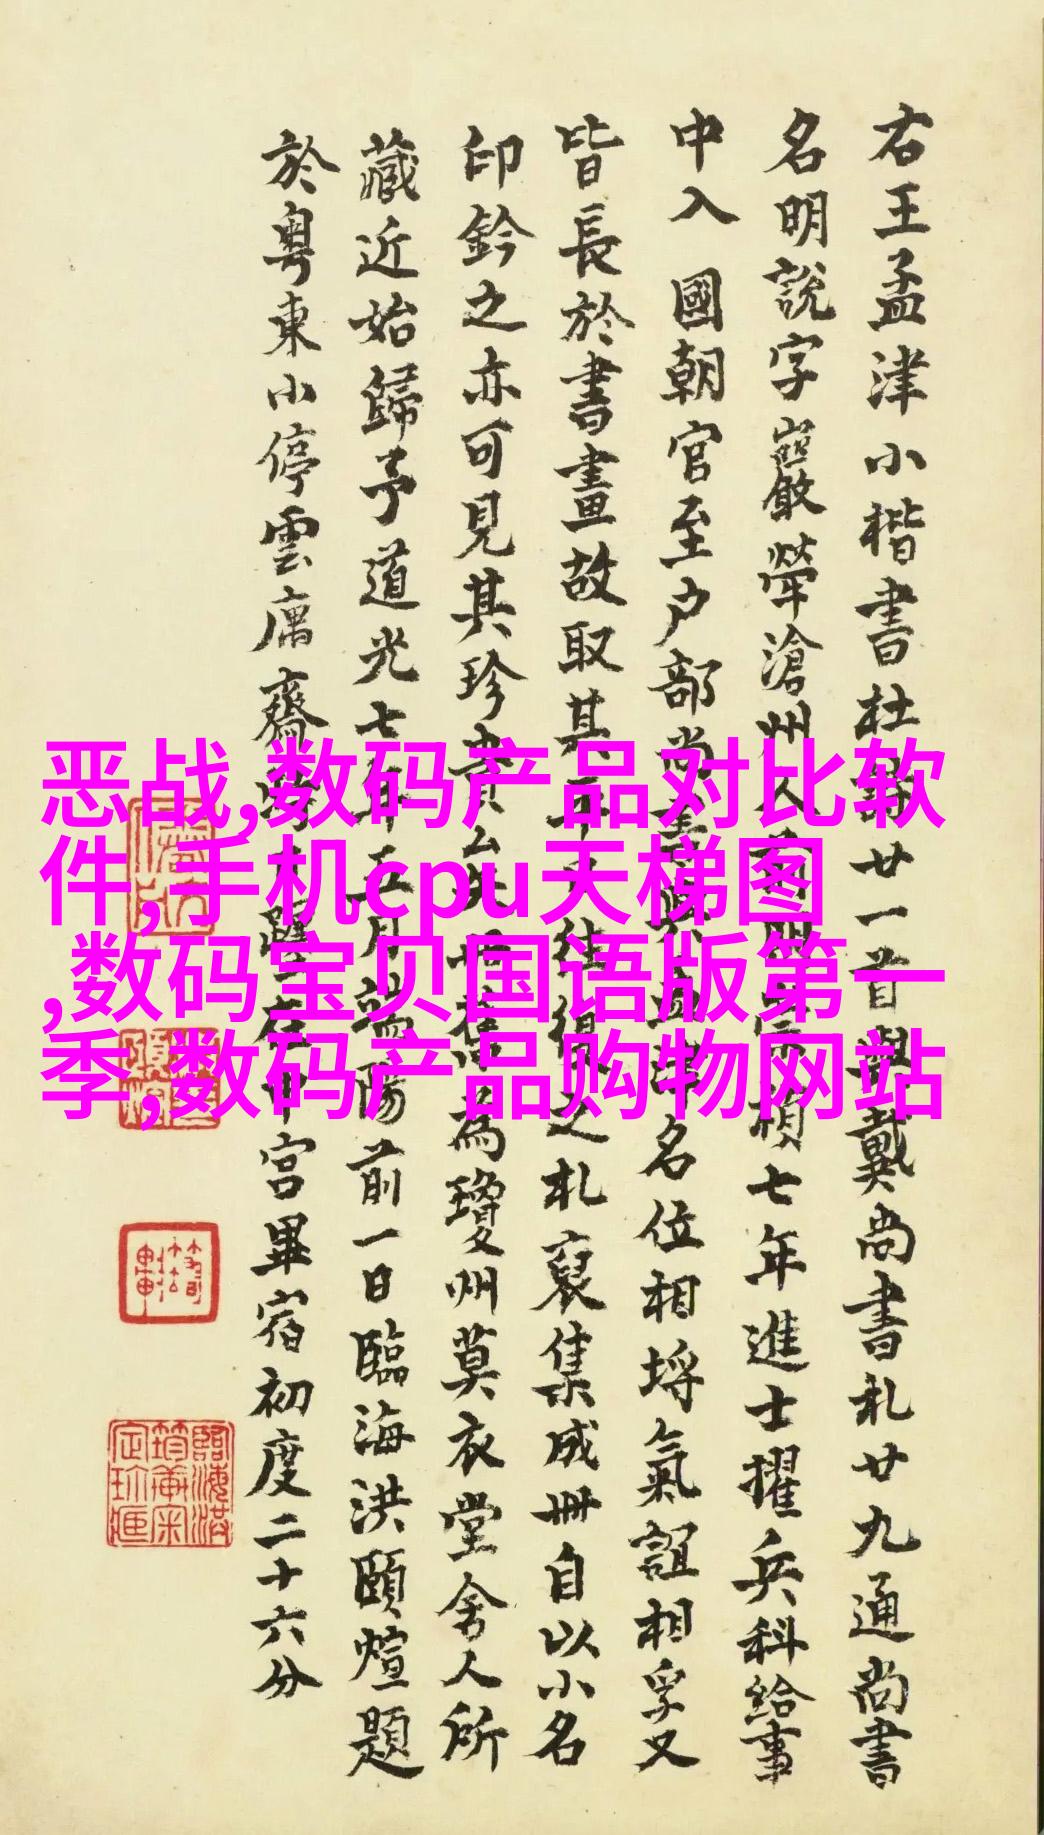 右王孟津小楷書杜詩廿一首與戴尚書札廿九通尚書
名明說字巖犖滄州人
七年進士擢兵科給事
中入國朝官至户部尚書
名位相埒氣誼相孚又
皆長於書畫故取其平
之札裒集成冊自以小名
印鈐之亦可見其珍貴
為瓊州莫衣堂舍人所
藏近始歸予道光七年五月端陽前一日臨海洪頤煊題
於粵東小停雲庽齋時
在甲宮畢宿初度二十六分
恶战,数码产品对比软
件,手机cpu天梯图
,数码宝贝国语版第一
季,数码产品购物网站